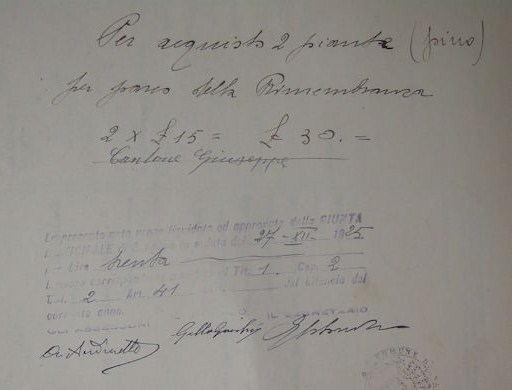 Per acquisto 2 piante (pino)
per parco della Rimembranza
2 x £ 15 = £ 30. =
Cantone Giuseppe
La presente nota venne liquidata ed approvata dalla GIUNTA
27 - XII - 1925
per Lire trenta
Tit. 1. Cap. 2
2 Art. 41 del bilancio del
corrente anno.
GLI ASSESSORI IL SEGRETARIO